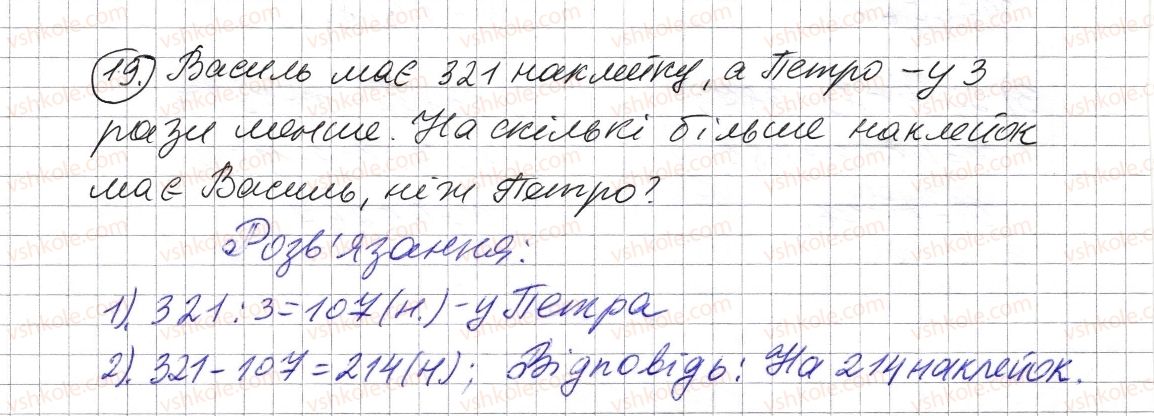 19. Василь має 321 наклейку, а Петро – у 3
рази менше. На скількі більше наклейок
має Василь, ніж Петро?
Розв'язання:
1). 321 : 3 = 107 (н.) – у Петра
2). 321 – 107 = 214 (н.); Відповідь: На 214 наклейок.